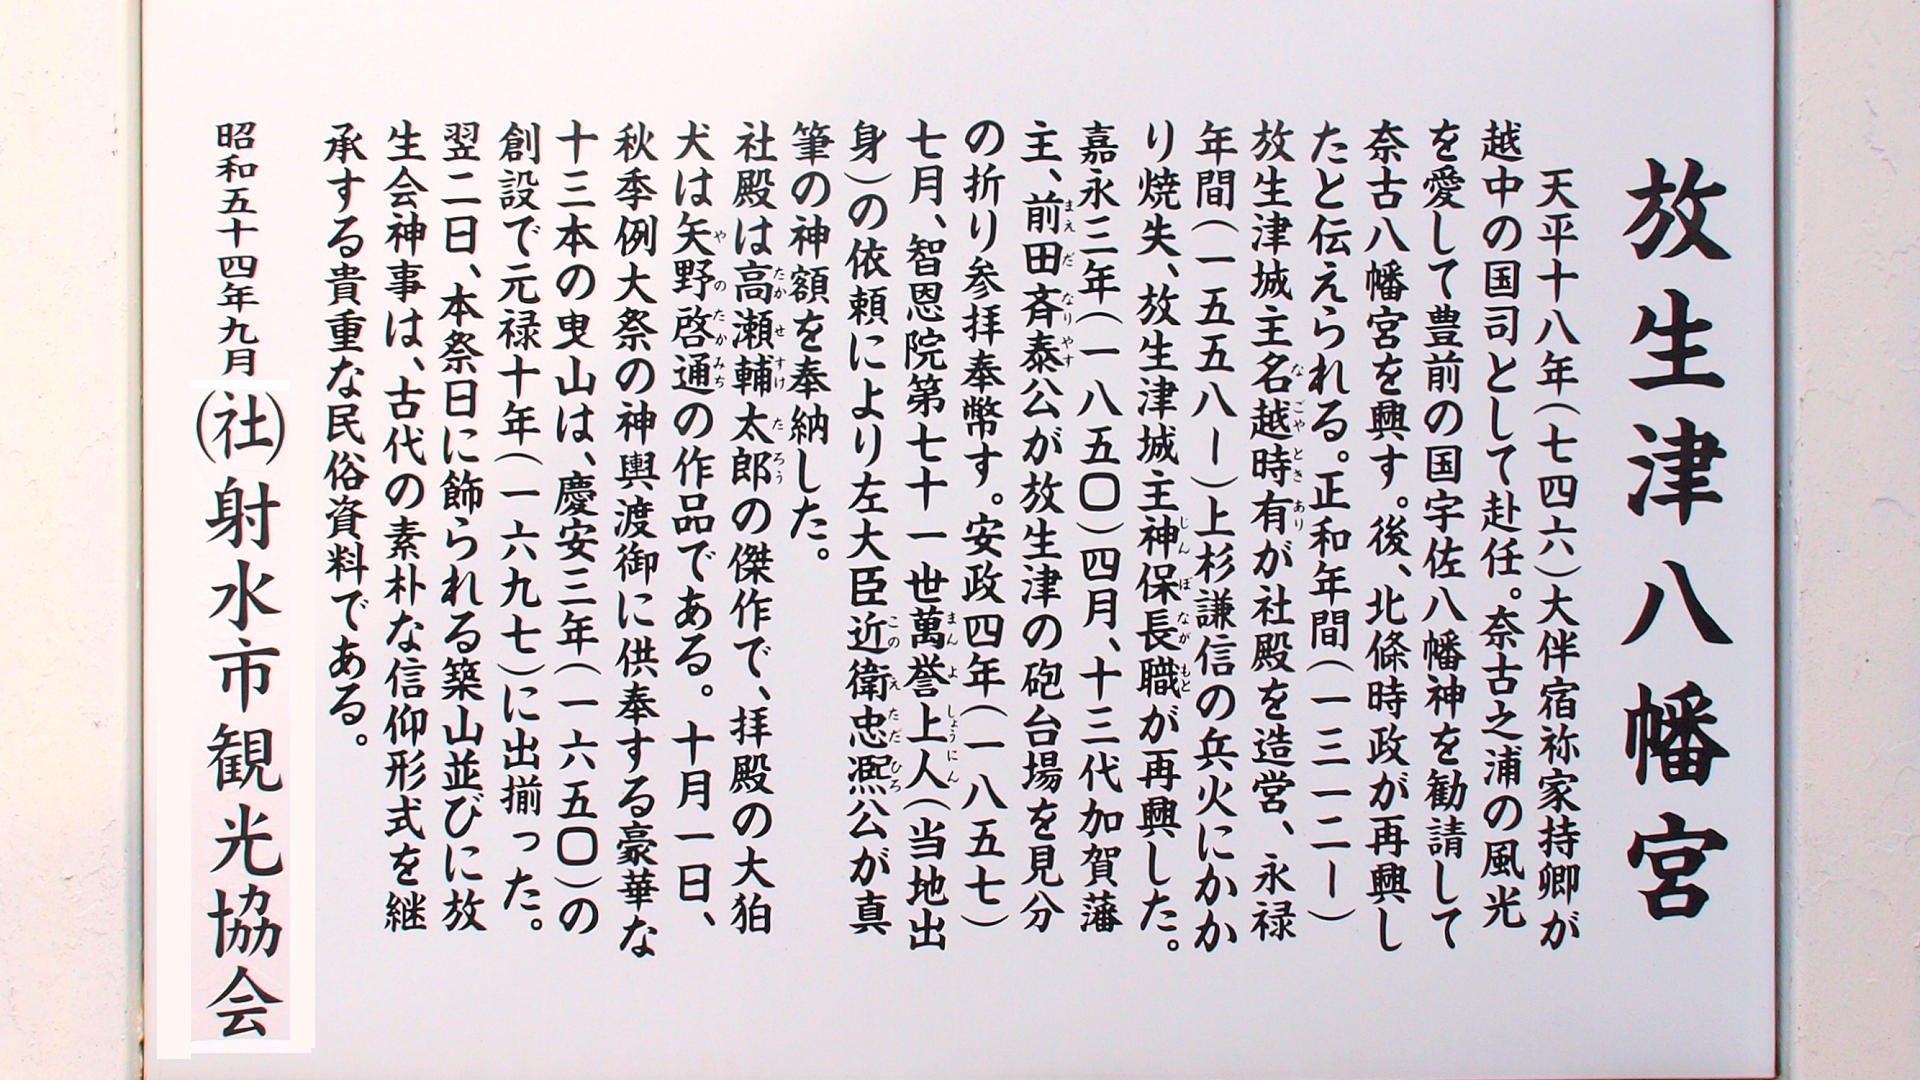 放生津八幡宮
天平十八年(七四六)大伴宿祢家持卿が
越中の国司として赴任。奈古之浦の風光
を愛して豊前の国宇佐八幡神を勧請して
奈古八幡宮を興す。後、北條時政が再興し
たと伝えられる。正和年間(一三一二ー)
放生津城主名越時有が社殿を造営、永禄
年間(一五五八ー)上杉謙信の兵火にかか
り焼失、放生津城主神保長職が再興した。
嘉永三年(一八五〇)四月、十三代加賀藩
主、前田斉泰公が放生津の砲台場を見分
の折り参拝奉幣す。安政四年(一八五七)
七月、智恩院第七十一世萬誉上人(当地出
身)の依頼により左大臣近衛忠凞公が真
筆の神額を奉納した。
社殿は高瀬輔太郎の傑作で、拝殿の大狛
犬は矢野啓通の作品である。十月一日、
秋季例大祭の神輿渡御に供奉する豪華な
十三本の曳山は、慶安三年(一六五〇)の
創設で元禄十年(一六九七)に出揃った。
翌二日、本祭日に飾られる築山並びに放
生会神事は、古代の素朴な信仰形式を継
承する貴重な民俗資料である。
昭和五十四年九月(社)射水市観光協会